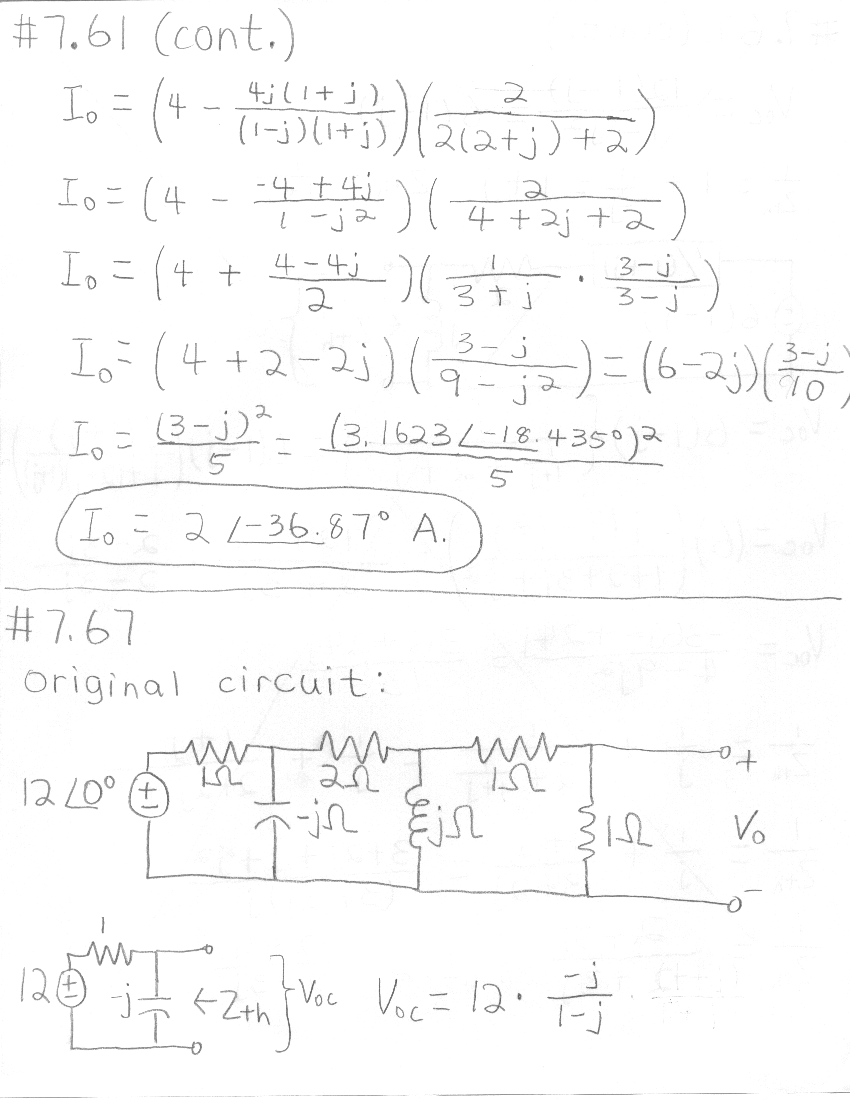 #7.61 (cont.)
I₀ = (4 - 4j(1+j)/(1-j)(1+j))(2/2(2+j)+2)
I₀ = (4 - -4+4j/1-j²)(2/4+2j+2)
I₀ = (4 + 4-4j/2)(1/3+j · 3-j/3-j)
I₀ = (4+2-2j)(3-j/9-j²) = (6-2j)(3-j/10)
I₀ = (3-j)²/5 = (3.1623∠-18.435°)²/5
I₀ = 2∠-36.87° A.
#7.67
original circuit:
1Ω 2Ω 1Ω +
12∠0° ± -jΩ jΩ 1Ω V₀
-
1
12 ± -j ←Zth } Voc Voc = 12 · -j/1-j